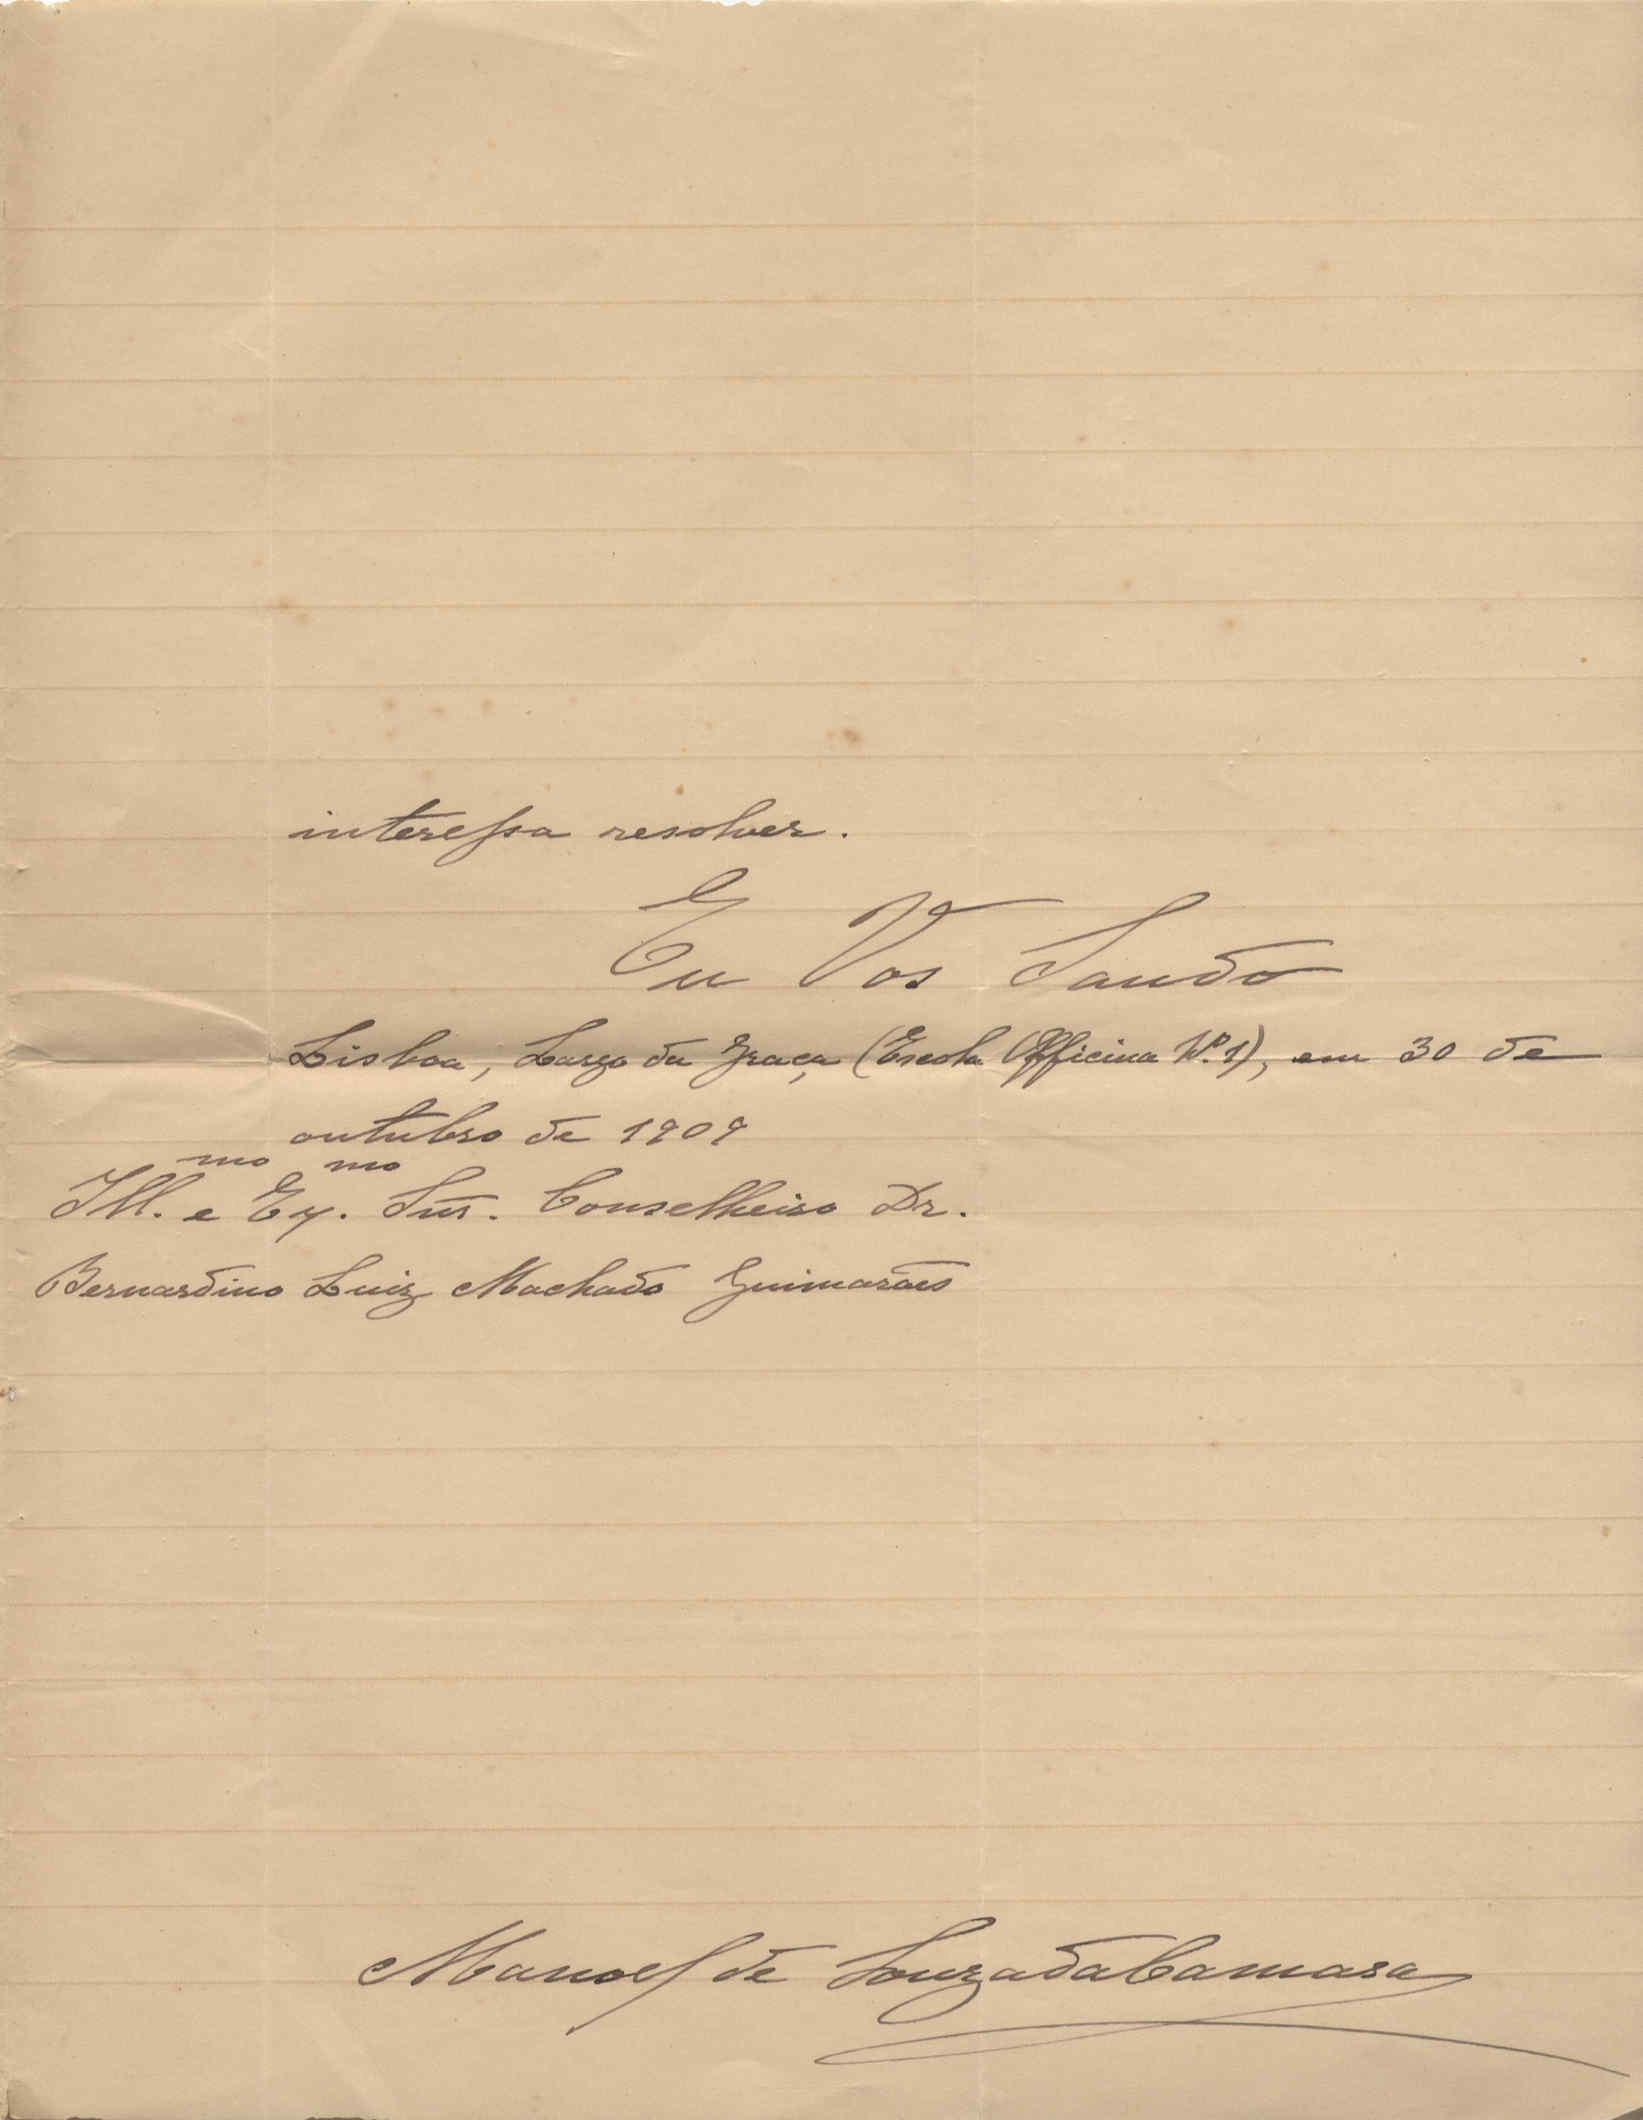 interessa resolver.
Eu Vos Saudo
Lisboa, Largo da Graça (Escola Officina Nº. 1), em 30 de
outubro de 1909
Ill.mo e Ex.mo Snr. Conselheiro Dr.
Bernardino Luiz Machado Guimarães
Manoel de Souza da Camara